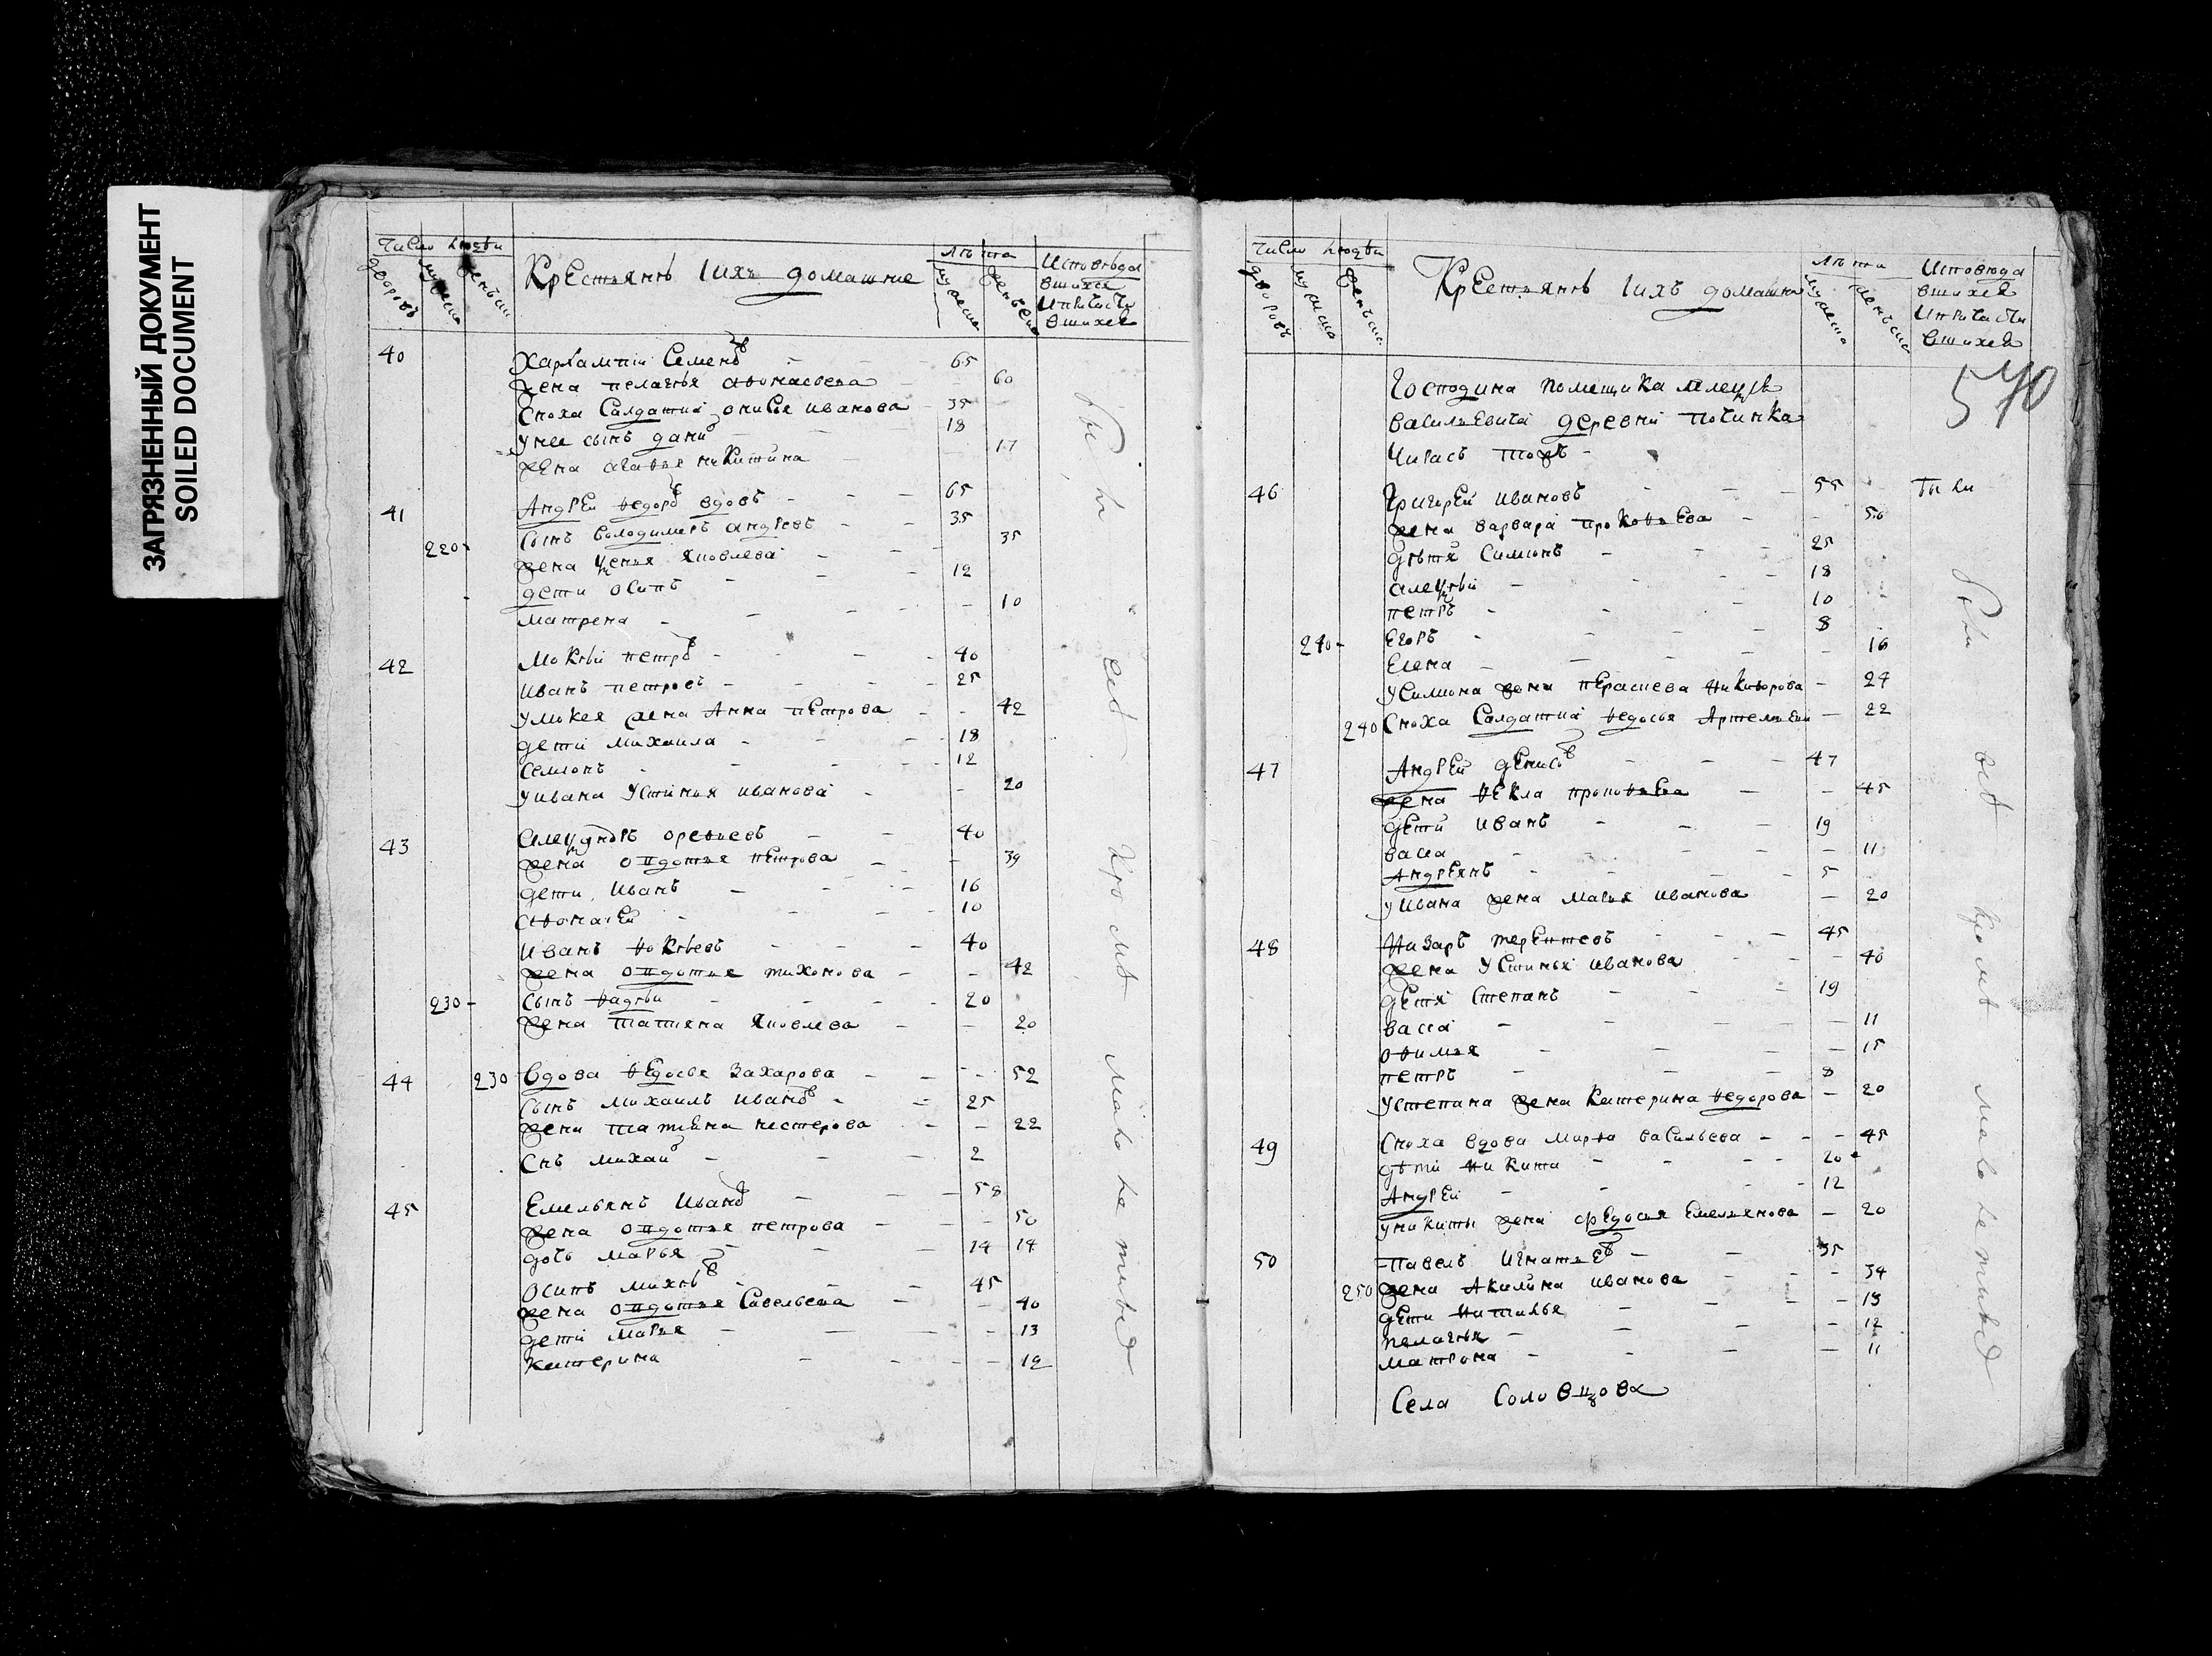 ЗАГРЯЗНЕННЫЙ ДОКУМЕНТ
SOILED DOCUMENT
Число людѣи
дворовъ
мужеска
женъски
Крестьянъ iихъ домашние
лѣта
мужеска
женъска
Исповѣда
вшихся
Ипричасти
вшихся
40 Харлампiи Семенъв 65
жена пелагѣя афонасьева 60
Сноха Салдатка онисья иванова 35
унее сынъ дани 18
жена агафья никитина 17
41 Андреи федоръв вдовъ 65
Сынъ володимеръ андревъ 35
220 жена яковлева 35
дети осипъ 12
матрена 10
42 Мокѣи петръв 40
Иванъ петровъ 25
умокея жена Анна петрова 42
детi михаила 18
Семионъ 12
уивана Устинья иванова 20
43 алеѯндръ орефьевъ 40
жена овдотья петрова 39
дети Иванъ 16
афонасеи 10
Иванъ фокѣевъ 40
жена овдотья тихонова 42
230 Сынъ фадѣи 20
жена татьяна яковлева 20
44 230 вдова федосья захарова 52
Сынъ михаилъ иванъв 25
жена татьяна нестерова 22
Снъ михаи 2
45 Емельянъ Иванъв 58
жена овдотья петрова 50
дочь марья 14 14
Осипъ михѣв 45
жена овдотья Савельева 40
детi марья 13
катерина 12
Число людѣи
дворовъ
мужеска
женъска
Крестьянъ iихъ домашни
лѣта
мужеска
женъска
Исповѣда
вшихся
Ипричасти
вшихся
570
Господина помещика алеѯѣя
васильевича деревни починка
Чирасъ тожъ
46 Григореи ивановъ 55
жена варвара прокофьева 50
дѣтя Симионъ 25
алеѯѣи 18
петръ 10
240 Егоръ 8
Елена 16
уСимиона жена перасцева Никифорова 24
240 Сноха Салдатка федосья Артемьева 22
47 Андреи денисъв 47
жена фекла 45
дети иванъ 19
васса 11
Андреянъ 5
уИвана жена марья иванова 20
48 Назаръ терентевъ 45
жена устинья иванова 40
детя степанъ 19
васса 11
офимья 15
петръ 8
устепана жена катерина федорова 20
49 Сноха вдова марфа васильева 45
дѣти Никита 20
Андреи 12
уникиты жена федосья Емельянова 20
50 Павелъ игнатьев 35
250 жена Акилина иванова 34
дети Наталья 13
пелагѣя 12
матрона 11
Села Соловцова